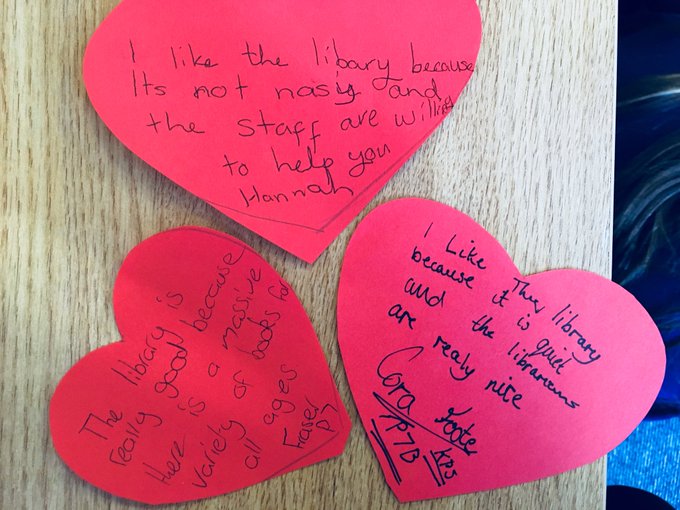 I like the libary because
Its not nasiy and
the staff are willing
to help you
Hannah
The library is
really good because
there is a massive
variety of books for
all ages
Fraser
P7
I Like They library
because it is quiet
and the librariens
are realy nice
Cora Foote
P7B KPS